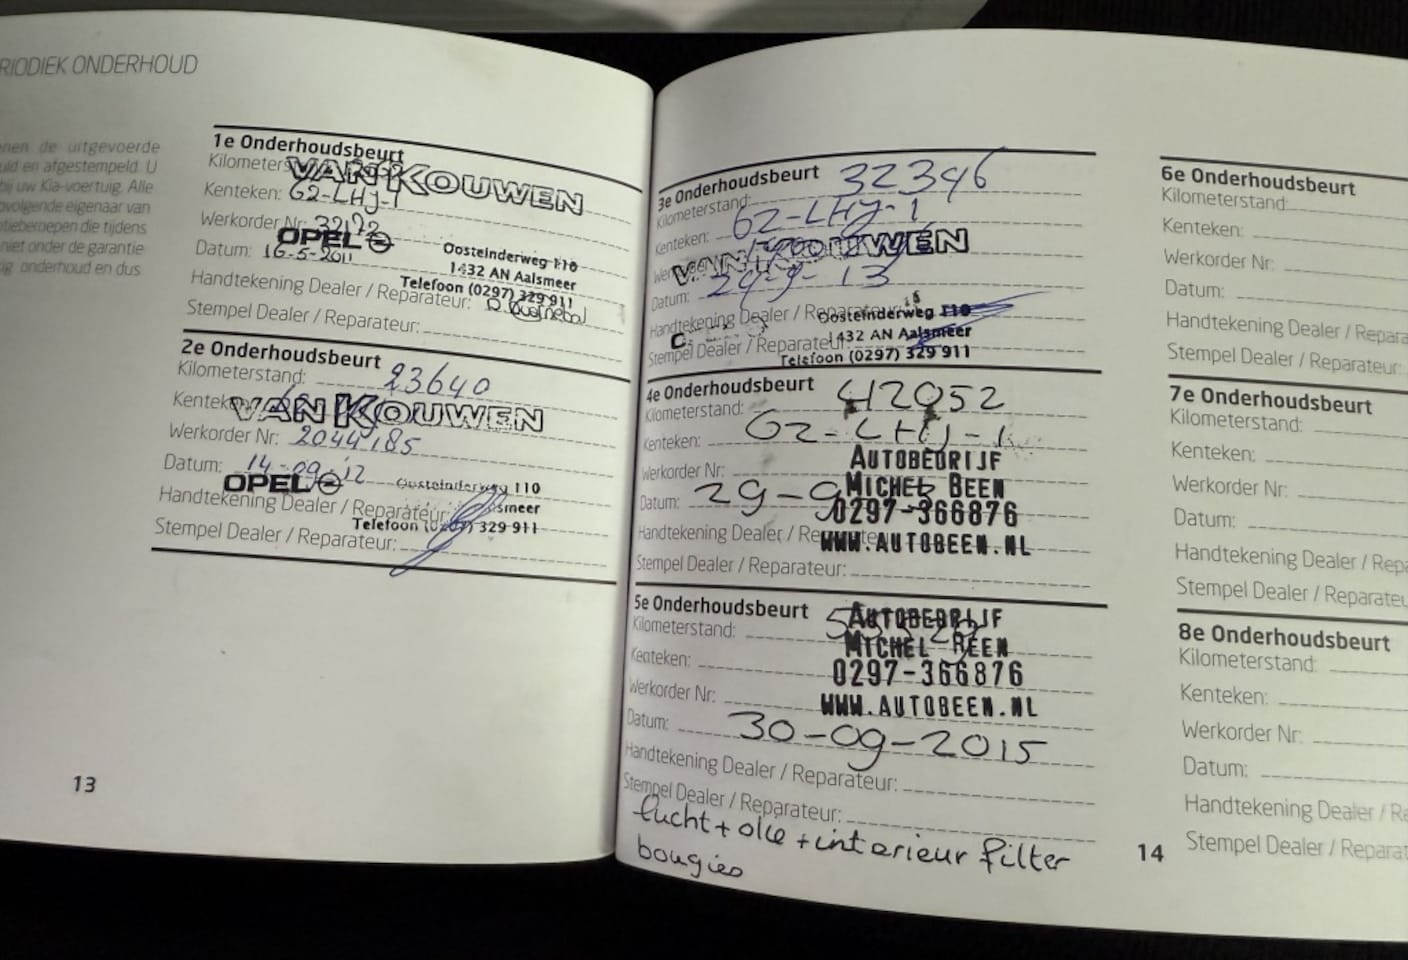 RIODIEK ONDERHOUD
nen de uitgevoerde
uld en afgestempeld. U
bij uw Kia-voertuig. Alle
volgende eigenaar van
tieberoepen die tijdens
niet onder de garantie
onderhoud en dus
1e Onderhoudsbeurt
VAN KOUWEN
Kenteken: 62-LHJ-1
Werkorder Nr:
OPEL
Datum: 16-5-2011
Oosteinderweg 110
1432 AN Aalsmeer
Telefoon (0297) 329 911
Handtekening Dealer / Reparateur:
Stempel Dealer / Reparateur:
2e Onderhoudsbeurt
Kilometerstand: 23640
VAN KOUWEN
Werkorder Nr: 2044185
Datum: 14-09-'12
OPEL
Oosteinderweg 110
Handtekening Dealer / Reparateur:
Telefoon 329 911
Stempel Dealer / Reparateur:
13
3e Onderhoudsbeurt
Kilometerstand: 32346
Kenteken: 62-LHJ-1
VAN KOUWEN
Datum: 13
Handtekening Dealer / Reparateur:
Oosteinderweg 110
1432 AN Aalsmeer
Stempel Dealer / Reparateur:
Telefoon (0297) 329 911
4e Onderhoudsbeurt
Kilometerstand: 42052
Kenteken: 62-LHJ-1
Werkorder Nr:
AUTOBEDRIJF
MICHEL BEEN
0297-366876
WWW.AUTOBEEN.NL
Datum: 29-9
Handtekening Dealer
Stempel Dealer / Reparateur:
5e Onderhoudsbeurt
Kilometerstand:
AUTOBEDRIJF
MICHEL BEEN
0297-366876
WWW.AUTOBEEN.NL
Kenteken:
Werkorder Nr:
Datum: 30-09-2015
Handtekening Dealer / Reparateur:
Stempel Dealer / Reparateur:
lucht + olie + interieur filter
bougies
6e Onderhoudsbeurt
Kilometerstand:
Kenteken:
Werkorder Nr:
Datum:
Handtekening Dealer / Repara
Stempel Dealer / Reparateu
7e Onderhoudsbeurt
Kilometerstand:
Kenteken:
Werkorder Nr:
Datum:
Handtekening Dealer / Rep
Stempel Dealer / Reparateu
8e Onderhoudsbeurt
Kilometerstand:
Kenteken:
Werkorder Nr:
Datum:
Handtekening Dealer / Re
Stempel Dealer / Reparat
14